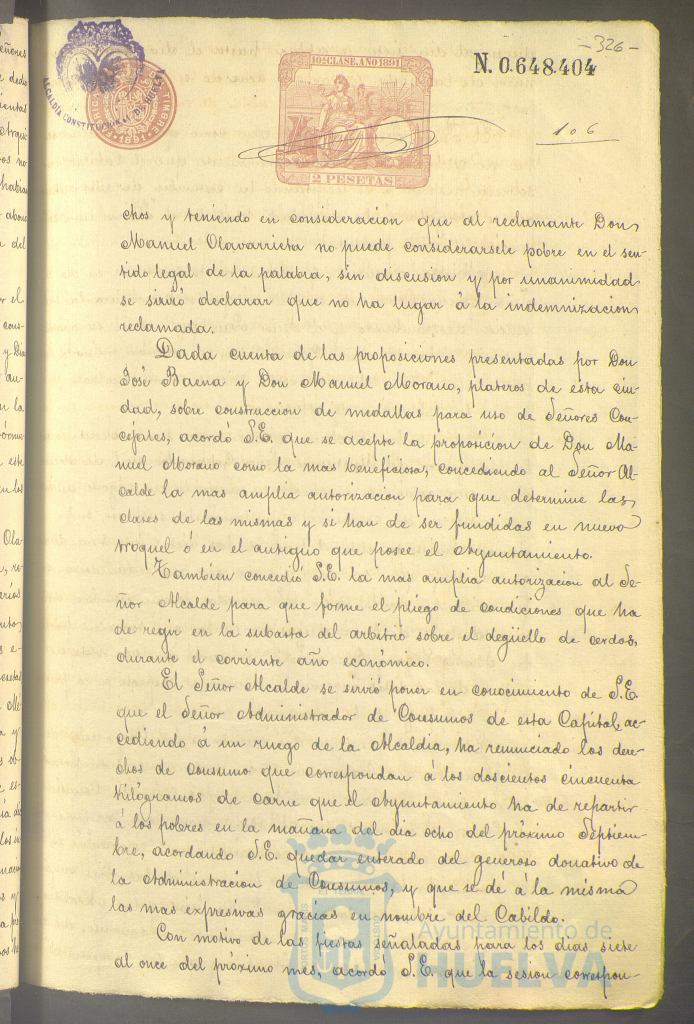 - 326 -
10ª CLASE. AÑO 1891
N. 0.648.404
ALCALDIA CONSTITUCIONAL DE HUELVA
1891
106
2 PESETAS
chos y teniendo en consideracion que al reclamante Don
Manuel Olavarrieta no puede considerarsele pobre en el sen-
tido legal de la palabra, sin discusion y por unanimidad
se sirvió declarar que no ha lugar á la indemnizacion
reclamada.
Dada cuenta de las proposiciones presentadas por Don
José Baena y Don Manuel Morano, plateros de esta ciu-
dad, sobre construccion de medallas para uso de Señores Con-
cejales, acordó S.E. que se acepte la proposicion de Don Ma-
nuel Morano como la mas beneficiosa, concediendo al Señor Al-
calde la mas amplia autorizacion para que determine las
clases de las mismas y si han de ser fundidas en nuevo
troquel ó en el antiguo que posee el Ayuntamiento.
Tambien concedió S.E. la mas amplia autorizacion al Se-
ñor Alcalde para que forme el pliego de condiciones que ha
de regir en la subasta del arbitrio sobre el degüello de cerdos,
durante el corriente año económico.
El Señor Alcalde se sirvió poner en conocimiento de S.E.
que el Señor Administrador de Consumos de esta Capital, ac-
cediendo á un ruego de la Alcaldia, ha renunciado los dere-
chos de consumo que correspondan á los doscientos cincuenta
kilógramos de carne que el Ayuntamiento ha de repartir
á los pobres en la mañana del dia ocho del próximo Septiem-
bre, acordando S.E. quedar enterado del generoso donativo de
la Administracion de Consumos, y que se dé á la misma
las mas expresivas gracias en nombre del Cabildo.
Con motivo de las fiestas señaladas para los dias siete
al once del próximo mes, acordó S.E. que la sesion correspon-
Ayuntamiento de
HUELVA